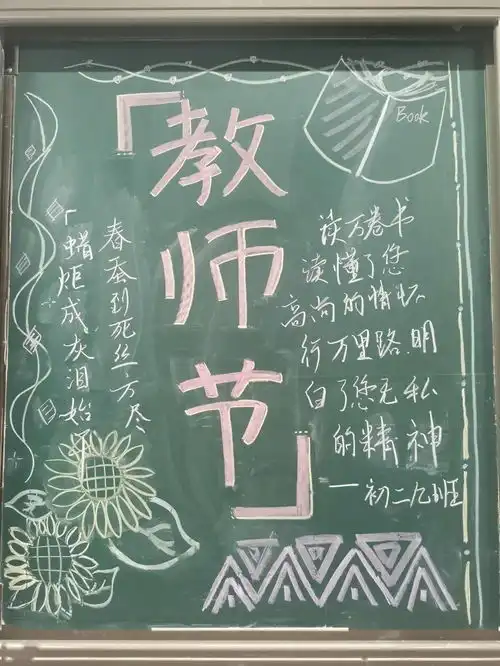 「教师节」
Book
春蚕到死丝方尽
「蜡炬成灰泪始
读万卷书
读懂了您
高尚的情怀
行万里路,明
白了您无私
的精神
—初二九班